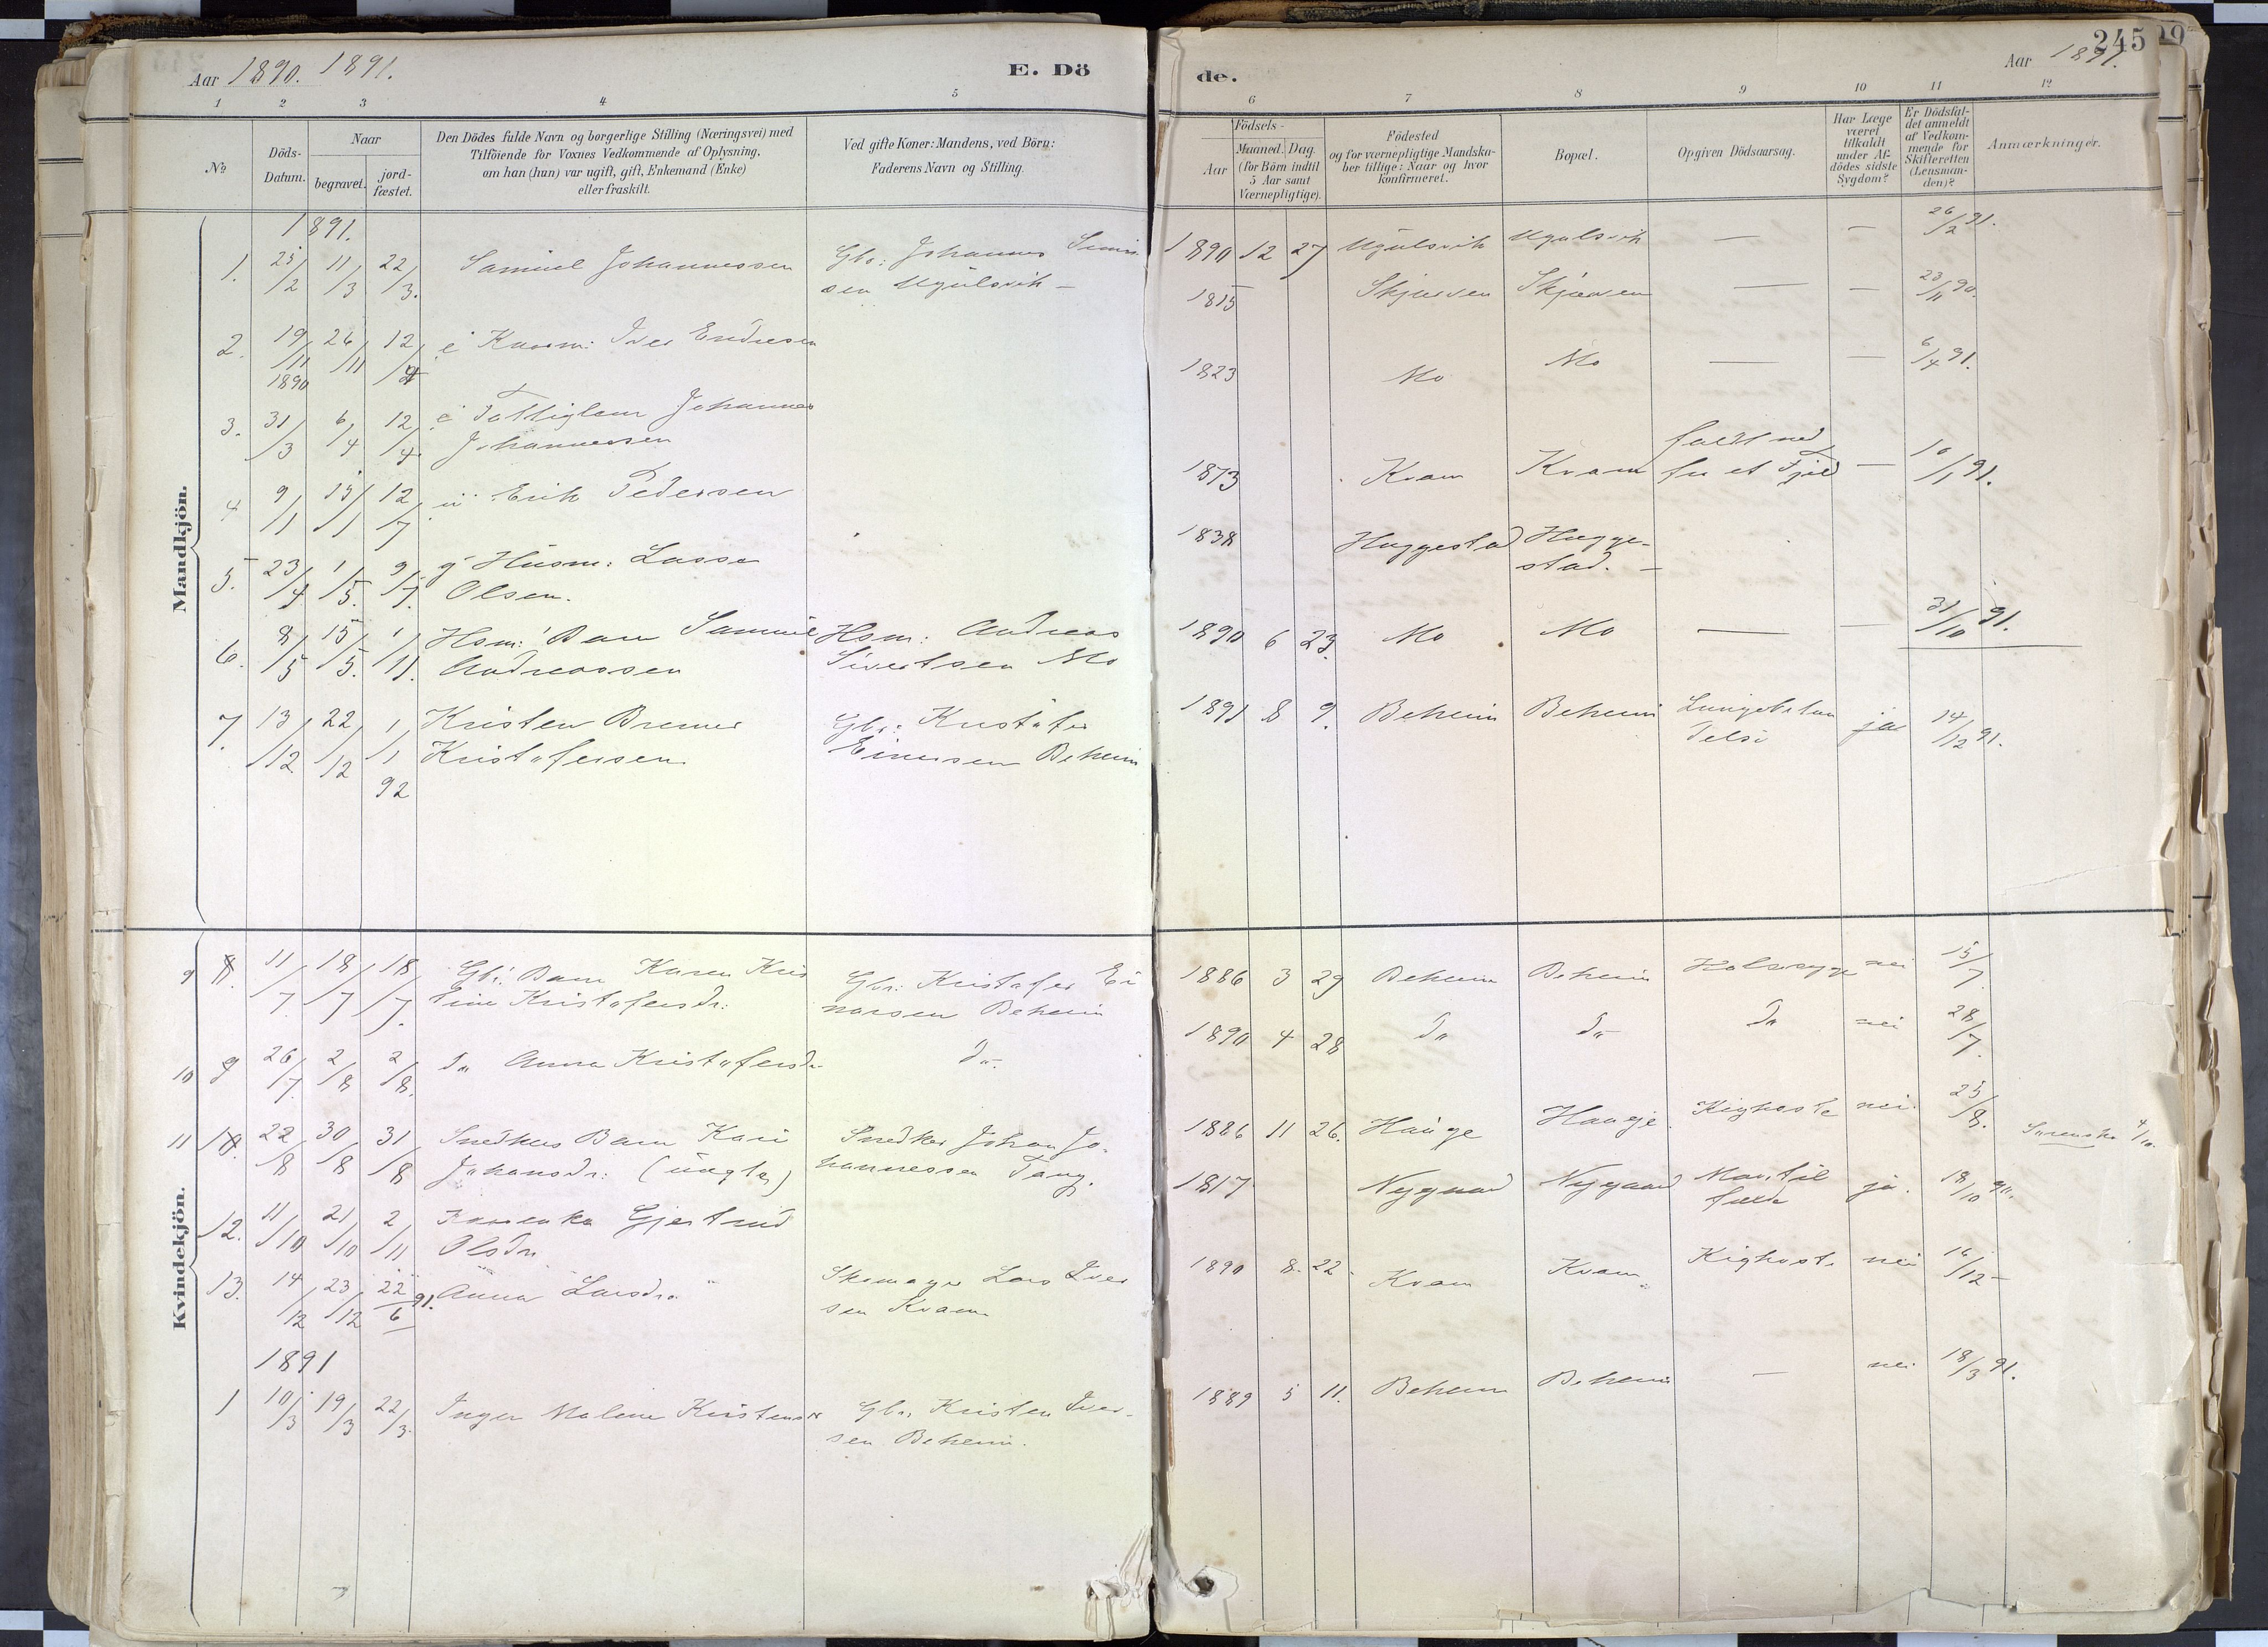 Aar 1890. 1891.
E. Dö
1 2 3 4 5
No
Döds-
Datum.
Naar
begravet.
jord-
fæstet.
Den Dödes fulde Navn og borgerlige Stilling (Næringsvei) med
Tilföiende for Voxnes Vedkommende af Oplysning,
om han (hun) var ugift, gift, Enkemand (Enke)
eller fraskilt.
Ved gifte Koner: Mandens, ved Börn:
Faderens Navn og Stilling.
Mandkjön.
1891.
1. 25/2 11/3 22/3. Samuel Johannessen Gbr: Johannes
sen Ugulsvik —
2. 19/11 1890 26/11 12/4 e Kaarm: Iver Endresen
3. 31/3 6/4 12/4. e Fattiglem Johannes
Johannessen
4 9/1 15/1 12/7 u Erik Pedersen
5. 23/4 1/5. 9/7. g Husm: Lasse
Olsen.
6. 8/5 15/5. 1/11. Hsm: Barn Samuel Hsm: Andreas
Andreassen Sivertsen Mo
7. 13/12 22/12 1/1 92 Kristen Bremer Gbr: Kristofer
Kristofersen Einersen Beheim
Kvindekjön.
9 8. 11/7. 18/7 18/7. Gbr. Barn Karen Kris Gbr: Kristofer Ei
tine Kristofersdr: narsen Beheim
10 9 26/7. 2/8 2/8. do Anna Kristofersdr do.
11 10. 22/8 30/8 31/8 Snedkers Barn Kari Snedker Johan Jo-
Johansdr: (uægte) hannessen Tang.
12. 11/10 21/10 2/11 Gjertrud
Olsdr
13. 14/12 23/12 22/6 91. Anna Larsdr. Skomager Lars Iver
sen Kvam
1891
1 10/3 19/3 22/3. Inger Malene Kristensdr Gbr. Kristen Iver-
sen Beheim.
de.
Aar 1891.
245
6 7 8 9 10 11 12
Födsels-
Aar
Maaned. Dag.
(for Börn indtil
5 Aar samt
Værnepligtige).
Födested
og for værnepligtige Mandska-
ber tillige: Naar og hvor
konfirmeret.
Bopæl.
Opgiven Dödsaarsag.
Har Læge
været
tilkaldt
under Af-
dödes sidste
Sygdom?
Er Dödsfal-
det anmeldt
af Vedkom-
mende for
Skifteretten
(Lensman-
den)?
Anmærkninger.
1890 12 27 Ugulsvik Ugulsvik — — 26/2 91.
1815 Skjerven Skjerven — — 23/11 90.
1823 Mo Mo — — 6/4 91.
1873 Kvam Kvam faldt ned
for et Fjeld — 10/1 91.
1838 Haggestad Hagge-
stad. —
1890 6 23. Mo Mo — — 31/10 91.
1891 8 9. Beheim Beheim ja 14/12 91.
1886 3 29 Beheim Beheim Halssyge nei 15/7.
1890 4 28 do do do nei 28/7.
1886 11 26. Hauge Hauge Kighoste nei. 25/8.
1817 Nygaard Nygaard ja. 18/10 90.
1890 8. 22. Kvam Kvam Kighoste nei 16/12 —
1889 5 11. Beheim Beheim — nei 18/3 91.